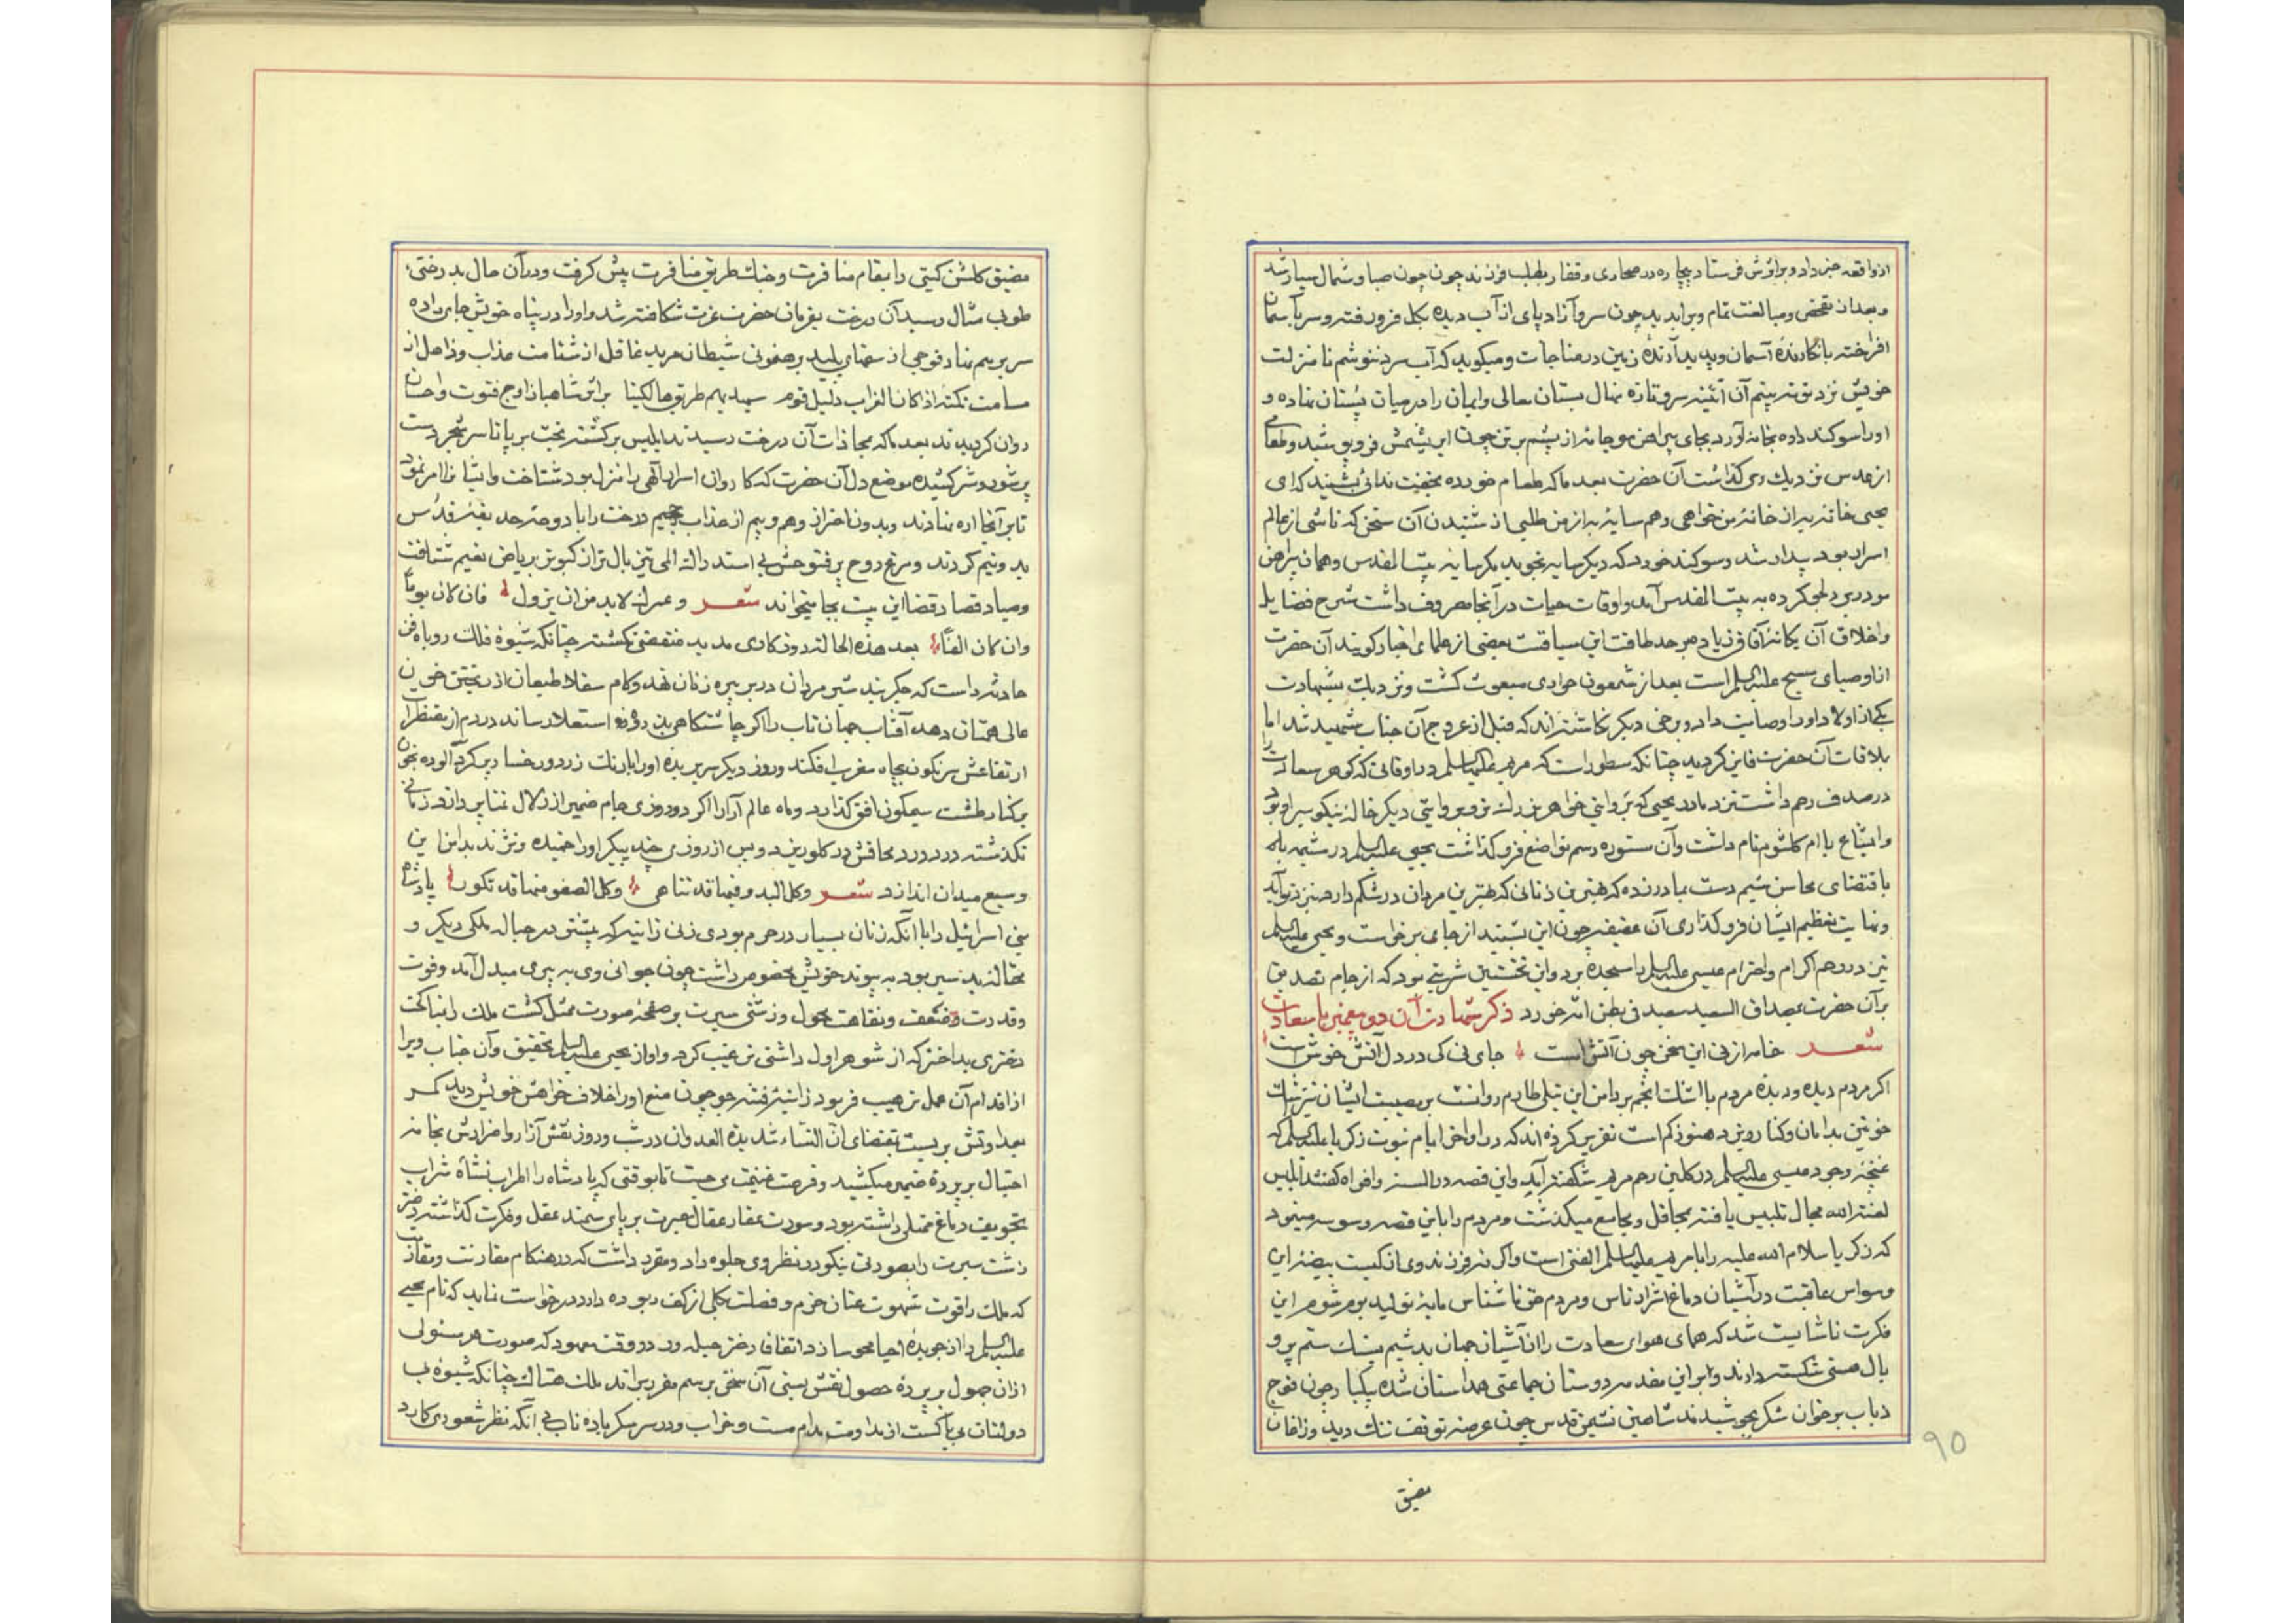 از واقعه خبر داد و بر اثرش فرستاد بیچاره در صحاری و قفار بطلب فرزند چون صبا و شمال سیار شد
و بعد از تفحص و مبالغت تمام ویرا بدید چون سرو آزاد پای از آب دیده بکل فرو رفته و سر بآسمان
افراخته با نکارندهٔ آسمان و پدید آرندهٔ زمین در مناجات و میکوید که آب سرد ننوشم تا منزلت
خویش نزد تو نه بینم آن تازه نهال بستان معالی و ایمان را در میان پستان نهاده و
او را سوکند داده بخانه آورد بجای پیراهن مو جامه از پشم بر تن چون ابریشمش فرو پوشید و طعامی
از عدس نزدیک وی کذاشت آن حضرت بعد ما که طعام خورده بخفت ندائی بشنید که ای
یحیی خانهٔ به از خانهٔ من خواهی و هم سایهٔ به از من طلبی از شنیدن آن سخن که ناشی از عالم
اسرار بود بیدار شد و سوکند خورد که دیکر سایه نجوید مکر سایه بیت المقدس و همان پیراهن
مو در بر کرده به بیت المقدس آمد و اوقات حیات در آنجا مصروف داشت شرح فضایل
و اخلاق آن یکانهٔ آفاق زیاد بر حد طاقت این سیاقت بعضی از علمای اخبار کویند آن حضرت
از اوصیای مسیح علیه السلم است بعد از شمعون حواری مبعوث کشت و نزدیک بشهادت
یکی از اولاد او را وصایت داد و برخی دیکر نکاشته اند که قبل از عروج آن جناب شهید شد اما
بلاقات آن حضرت فایز کردید چنانکه مسطور است که مریم علیها السلم در اوقاتی که کوهر سعادت را
در صدف رحم داشت نزد مادر یحیی که بروایتی خواهر بزرک تر و بروایتی دیکر خاله نیکو سیر او بود
و ایشاع یا ام کلثوم نام داشت و آن ستوده رسم تواضع فرو کذاشت یحیی علیه السلم در مشیمه
باقتضای محاسن شیم دست بمادر زده که بهترین زنانی که بهترین مردان در شکم دارد نزد تو آید
و نهایت تعظیم ایشان فرو کذاری آن عفیفه چون این بشنید از جای برخواست و یحیی علیه السلم
نیز در رحم اکرام و احترام عیسی علیه السلم را سجده برد و این نخستین شربتی بود که از جام تصدیق
بر آن حضرت بمصداق السعید سعید فی بطن امه خورد ذکر شهادت آن دو پیغمبر با سعادت
شعر خامه از نی این سخن چون آتش است جای نی کی در دل آتش خوش است
اکر مردم دیده و دیدهٔ مردم با اشک انجم بر دامن این نیلی طارم روانست بر مصیبت ایشان نیز شک
خونین بدامان و کنار ریزد هنوز کم است تقریر کرده اند که در اواخر ایام نبوت زکریا علیه السلم که
غنچهٔ وجود عیسی علیه السلم در کلبن رحم مریم شکفته آید و این قصه در السنه و افواه کفتند ابلیس
لعنة الله مجال تلبیس یافته بمحافل و مجامع میکذشت و مردم را باین قصه وسوسه مینمود
که زکریا سلام الله علیه را با مریم علیها السلم الفتی است و اکر نه فرزند وی از کیست بیضهٔ این
وسواس عاقبت در آشیان دماغ اشرار ناس و مردم حق ناشناس مایهٔ تولید بوم شوم این
فکرت ناشایست شد که همای هوای سعادت را از آشیان جهان بدشیم بسنک ستم پر و
بال هستی شکسته دارند و بر این مقدمه دوستان جماعتی همداستان شده بیکبار چون فوج
ذباب بر خوان شکر بجوشیدند شاهین نشیمن قدس چون عرصه توقف تنک دید و زاغان
مضیق
۹۵
مضیق کلشن کیتی را بقام منافرت و جناب طریق منافرت پیش کرفت و در آن حال بدرختی
طوبی مثال رسید آن درخت بفرمان حضرت عزت شکافته شد و او را در پناه خویش جای داده
سر بر هم نهاد فوجی از سفهای پلید برهنمونی شیطان مرید غافل از شئامت عذاب و ذاهل از
مسامت نکته اذا کان الغراب دلیل قوم سیهدیهم طریق هالکینا بر اثر شاهباز اوج فتوت و احسان
روان کردیدند بعد ما که بمحاذات آن درخت رسیدند ابلیس برکشته بخت بر پا تا سر شجر دست
پر شور و شر کشیده موضع دل آن حضرت که کاروان اسرار الهی را منزل بود شناخت و ایشان را امر نمود
تا بر آنجا اره نهادند و بدون احتراز و هم و بیم از عذاب جحیم درخت را با دوحهٔ حدیقهٔ قدس
بدو نیم کردند و مرغ روح پر فتوحش بی استدراک الم تیز بال تر از کبوتر بریاض نعیم شتافت
و صیاد قصاد قضا این بیت بجا میخواند شعر و عمرک لا بد من ان یزول فان کان یوما
وان کان الفا بعد هذه الحاله روزکاری مدید منقضی نکشته چنانکه شیوهٔ فلک روباه فن
حادثه راست که جکر بند شیر مردان در بر پیره زنان نهد و کام سفلا طبعان از ریختن خون
عالی همتان دهد آفتاب جهان تاب را اکر چاشتکاهی بذروهٔ استعلا رساند در دم از مقنطرات
ارتفاعش سرنکون بچاه مغرب افکند و روز دیکر سر بریده او را با رنک زرد و رخسار پر کرد آلوده بخون
بر کنار طشت سیمکون افق کذارد و ماه عالم آرا را اکر دو روزی جام ضمیر از زلال غنا پر دارد زمانی
نکذشته درد درد محاقش در کلو ریزد و پس از روزی چند پیکر او را خمیده و نژند بدامن این
وسیع میدان اندازد شعر وکل البدو فیها قد تناهی وکل الصفو منها قد تکون پادشاه
بنی اسرائیل را با آنکه زنان بسیار در حرم بودی زنی زانیه که پیشتر در حباله ملکی دیکر و
بود به پیوند خویش مخصوص داشت چون جوانی وی به پیری مبدل آمد و قوت
و قدرت وضعف و نقاهت محول و زشتی سیرت بر صفحهٔ صورت ممثل کشت ملک را بنا کحت
دختری بد اختر که از شوهر اول داشتی ترغیب کرد و او از یحیی علیه السلم تحقیق و آن جناب ویرا
از اقدام آن عمل ترهیب فرمود زانیهٔ فتنه جو چون منع او را خلاف خواهش خویش دید کمر
بعداوتش بر بست بمقتضای ان النساء شدیدة العدوان در شب و روز نقش آزار و اضرارش بخامهٔ
احتیال بر پردهٔ ضمیر میکشید و فرصت غنیمت می جست تا بوقتی که پادشاه را اطراب نشأة شراب
بتجویف دماغ ممتلی داشته بود و سورت عقار عقال حیرت بر پای سمند عقل و فکرت کذاشته دختر
زشت سیرت را بصورتی نیکو در نظر وی جلوه داد و مقرر داشت که در هنکام مقارنت و مقاربت
که ملک را قوت شهوت عنان حزم و فضلت بکلی از کف ربوده دارد درخواست نماید که نام یحیی
علیه السلم را از جریدهٔ احیا محو سازد اتفاقا دختر حیله ور در وقت معهود که صورت هر مسئولی
از آن جهول بر پردهٔ حصول نقش بستی آن سخن برسم مقرر براند ملک هتاک چنانکه شیوهٔ
دولتان بی باکست از مداومت مدام مست و خراب و در سر سکر بادهٔ ناب بی آنکه نظر شعوری کارد